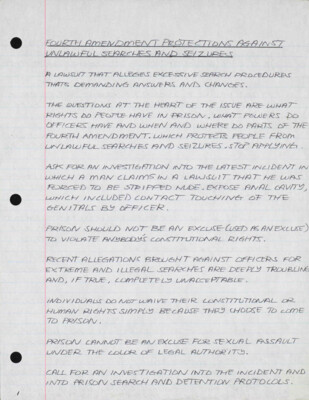 FOURTH AMENDMENT PROTECTIONS AGAINST
UNLAWFUL SEARCHES AND SEIZURES
A LAWSUIT THAT ALLEGES EXCESSIVE SEARCH PROCEDURES
THATS DEMANDING ANSWERS AND CHANGES.
THE QUESTIONS AT THE HEART OF THE ISSUE ARE WHAT
RIGHTS DO PEOPLE HAVE IN PRISON. WHAT POWERS DO
OFFICERS HAVE AND WHEN AND WHERE DO PARTS OF THE
FOURTH AMENDMENT. WHICH PROTECTS PEOPLE FROM
UNLAWFUL SEARCHES AND SEIZURES. STOP APPLYING.
ASK FOR AN INVESTIGATION INTO THE LATEST INCIDENT IN
WHICH A MAN CLAIMS IN A LAWSUIT THAT HE WAS
FORCED TO BE STRIPPED NUDE. EXPOSE ANAL CAVITY,
WHICH INCLUDED CONTACT TOUCHING OF THE
GENITALS BY OFFICER.
PRISON SHOULD NOT BE AN EXCUSE (USED AS AN EXCUSE)
TO VIOLATE ANYBODY'S CONSTITUTIONAL RIGHTS.
RECENT ALLEGATIONS BROUGHT AGAINST OFFICERS FOR
EXTREME AND ILLEGAL SEARCHES ARE DEEPLY TROUBLING
AND, IF TRUE, COMPLETELY UNACCEPTABLE.
INDIVIDUALS DO NOT WAIVE THEIR CONSTITUTIONAL OR
HUMAN RIGHTS SIMPLY BECAUSE THEY CHOOSE TO COME
TO PRISON.
PRISON CANNOT BE AN EXCUSE FOR SEXUAL ASSAULT
UNDER THE COLOR OF LEGAL AUTHORITY.
CALL FOR AN INVESTIGATION INTO THE INCIDENT AND
INTO PRISON SEARCH AND DETENTION PROTOCOLS.
1